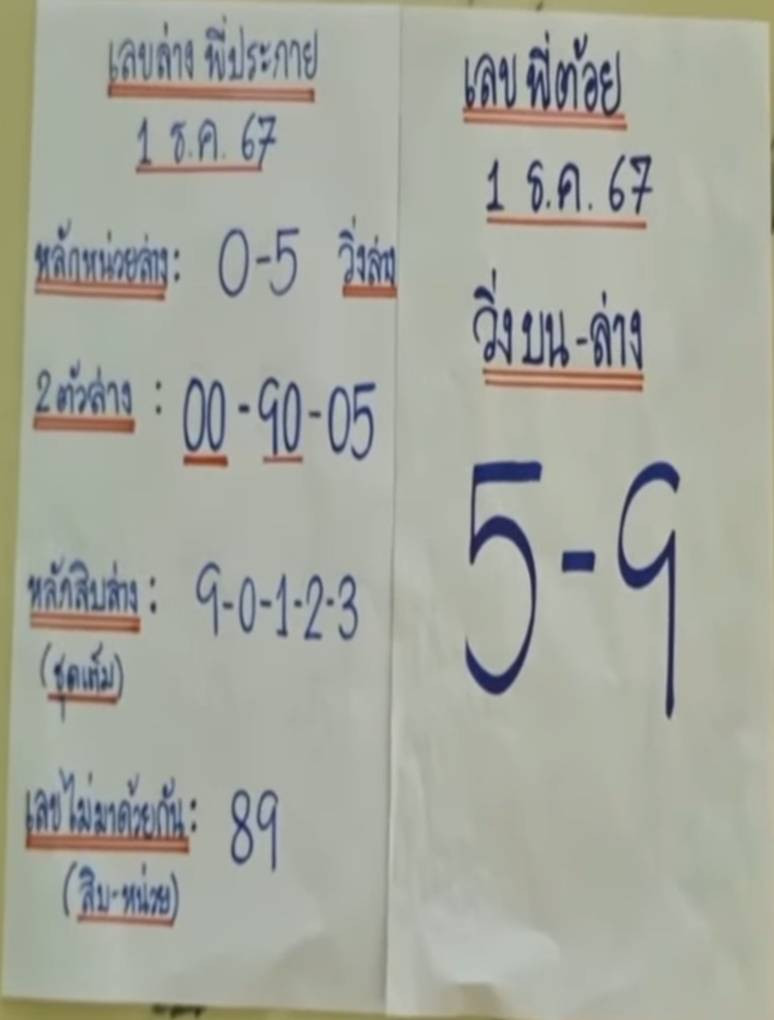 เลขล่าง พี่ประกาย
1 ธ.ค. 67
หลักหน่วยล่าง: 0-5 วิ่งล่าง
2 ตัวล่าง : 00-90-05
หลักสิบล่าง : 9-0-1-2-3
(ชุดเต็ม)
เลขไม่มาด้วยกัน: 89
(สิบ-หน่วย)
เลข พี่ต้อย
1 ธ.ค. 67
วิ่ง บน-ล่าง
5-9